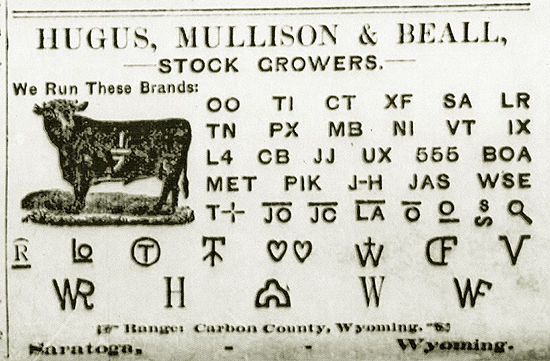 HUGUS, MULLISON & BEALL,
STOCK GROWERS.
We Run These Brands:
OO TI CT XF SA LR
TN PX MB NI VT IX
L4 CB JJ UX 555 BOA
MET PIK J-H JAS WSE
JO JC LA O O S S
R LO T ♡♡ W CF V
WR H W WF
Range: Carbon County, Wyoming.
Saratoga, - - Wyoming.